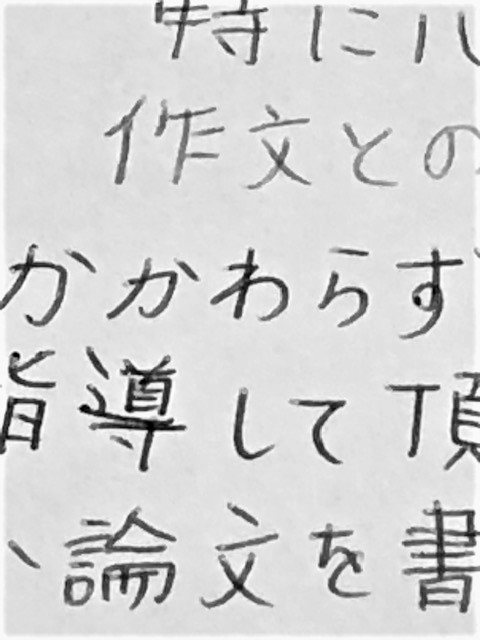 特に
作文との
かかわらず
指導して頂
、論文を書